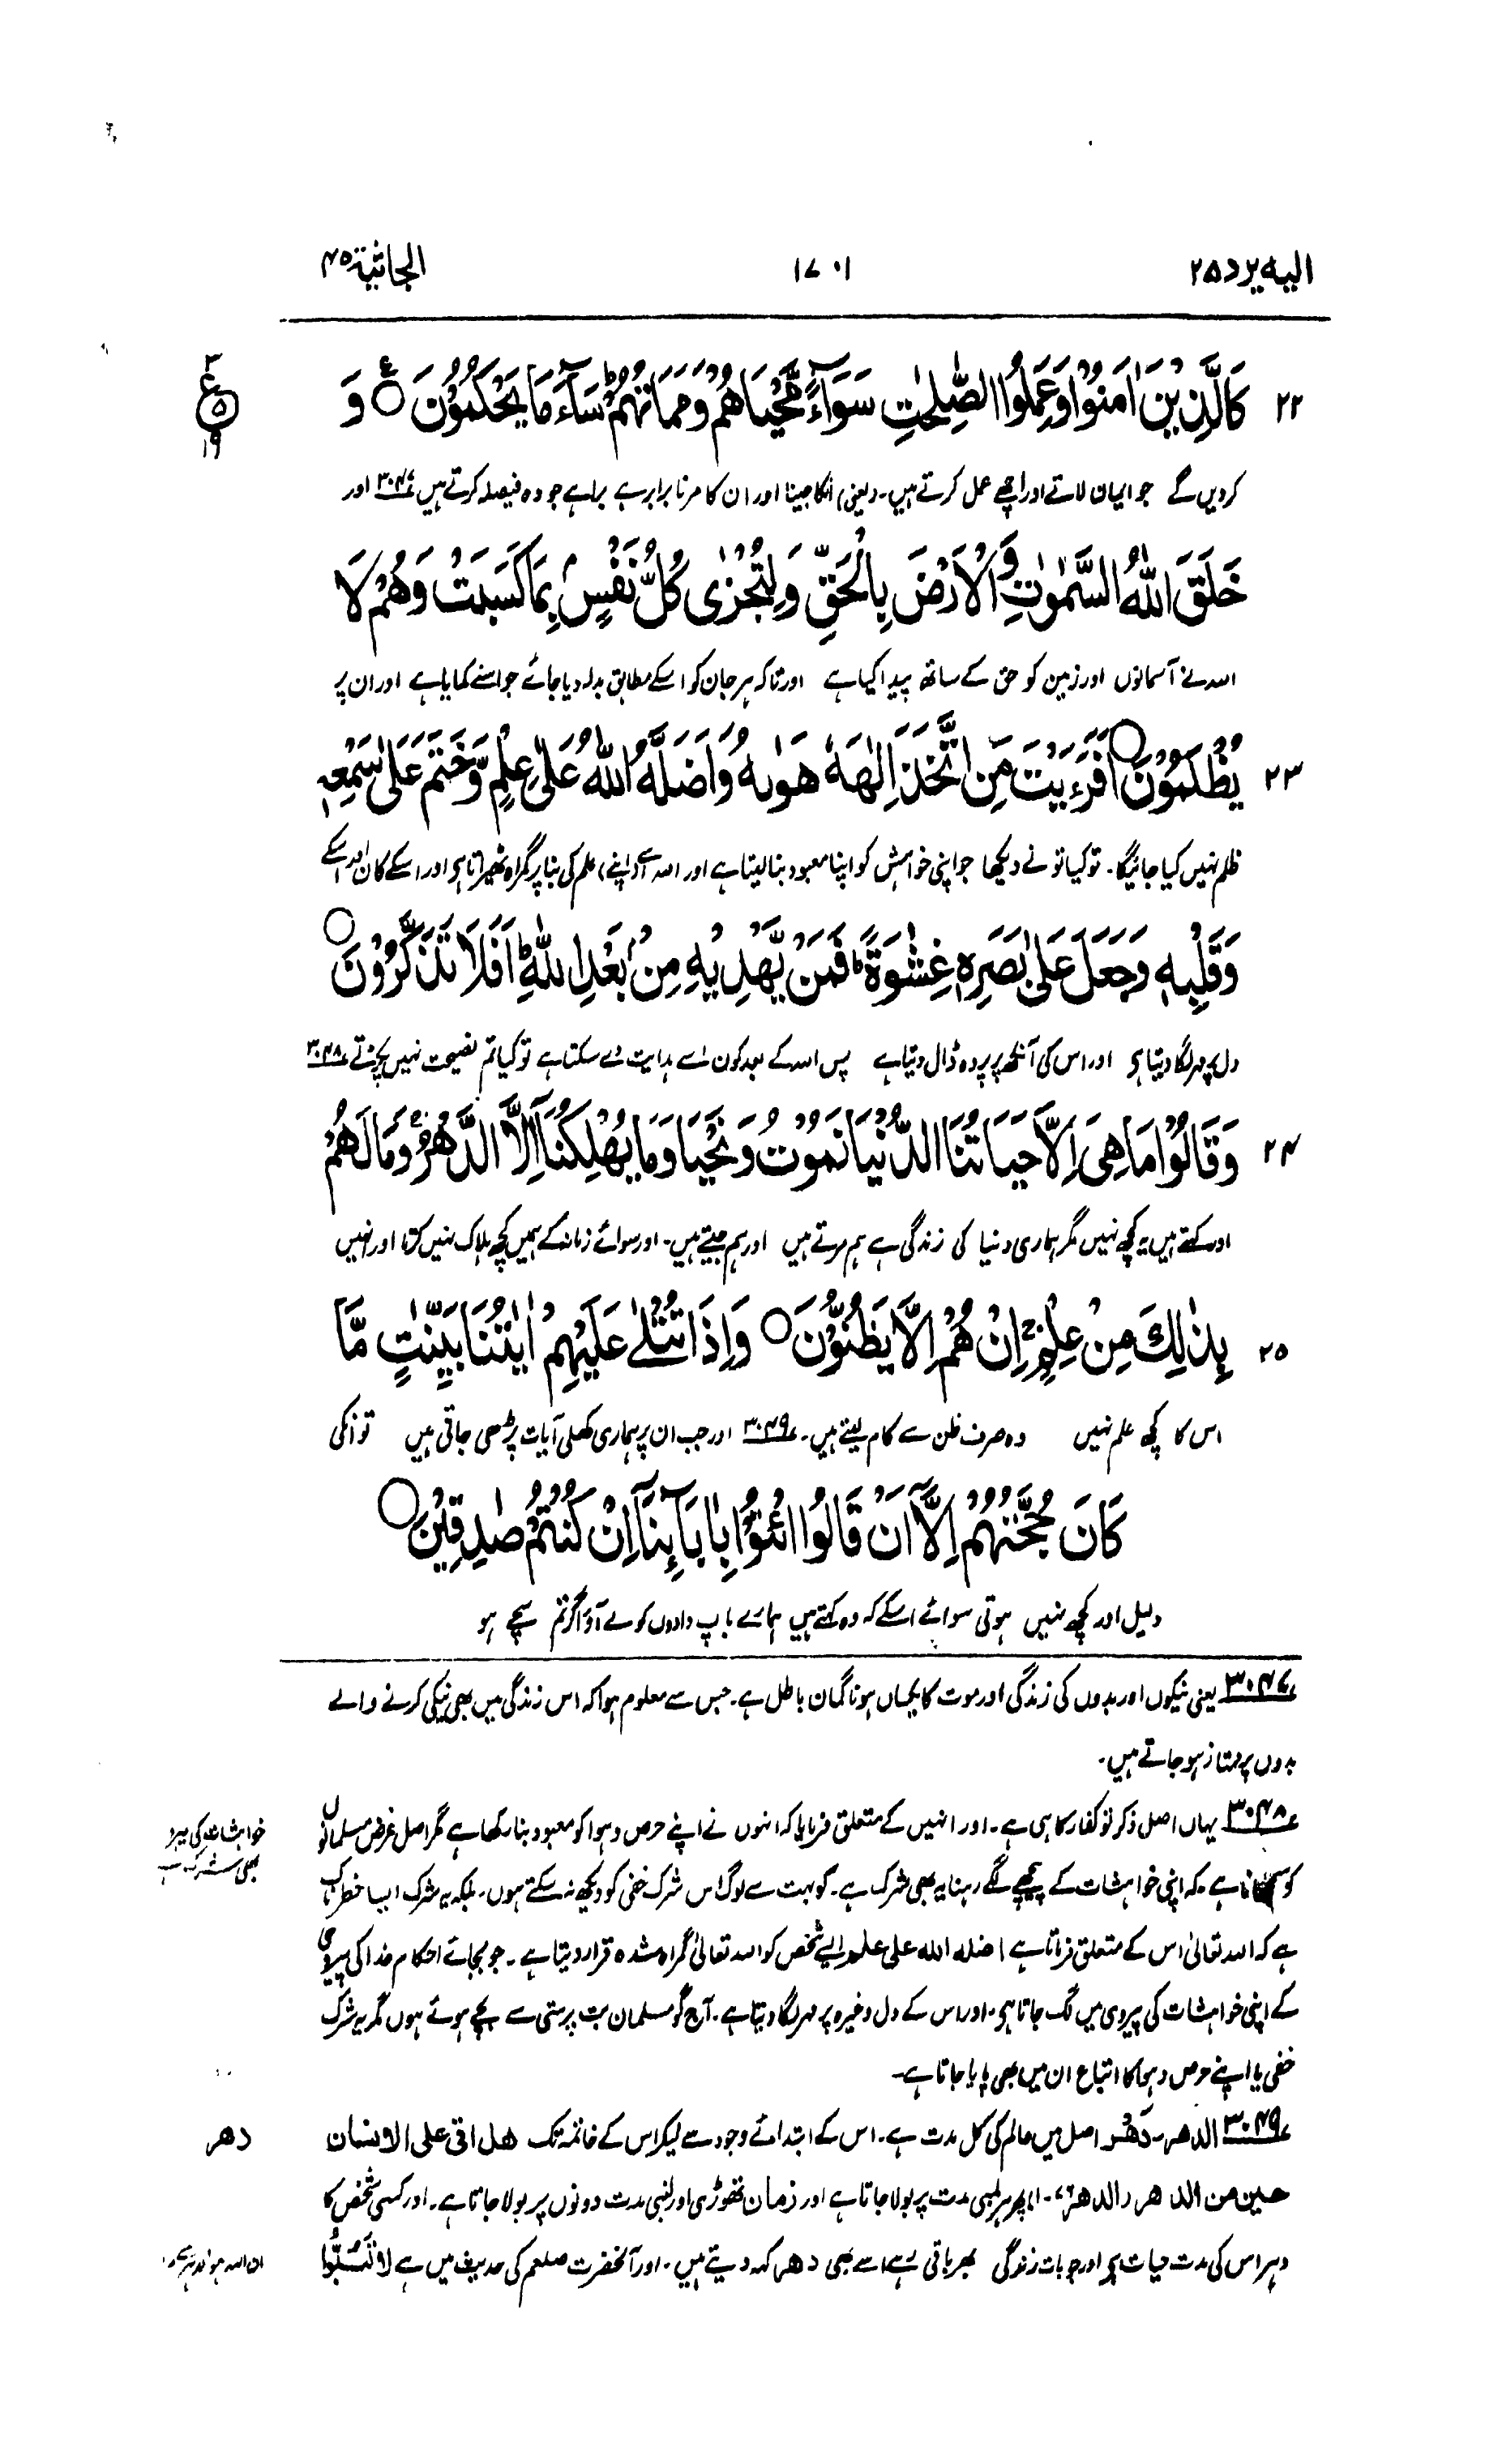 الیه یرد ۲۵
۱۷۰۱
الجاثیة ۴۵
۲۲ كَالَّذِیْنَ اٰمَنُوْا وَعَمِلُوا الصّٰلِحٰتِ سَوَآءً مَّحْیَاهُمْ وَمَمَاتُهُمْ ؕ سَآءَ مَا یَحْكُمُوْنَ ۝ وَ
ع ۳ ۵ ۱۹
کردیں گے جو ایمان لاتے اور اچھے عمل کرتے ہیں۔ (یعنی) انکا جینا اور ان کا مرنا برابر ہے برا ہے جو وہ فیصلہ کرتے ہیں ۳۰۴۷ اور
خَلَقَ اللّٰهُ السَّمٰوٰتِ وَالْاَرْضَ بِالْحَقِّ وَلِتُجْزٰی كُلُّ نَفْسٍۭ بِمَا كَسَبَتْ وَهُمْ لَا
اللہ نے آسمانوں اور زمین کو حق کے ساتھ پیدا کیا ہے اور تاکہ ہر جان کو اسکے مطابق بدلہ دیا جائے جو اسنے کمایا ہے اور ان پر
۲۳ یُظْلَمُوْنَ ۝ اَفَرَءَیْتَ مَنِ اتَّخَذَ اِلٰهَهٗ هَوٰىهُ وَاَضَلَّهُ اللّٰهُ عَلٰی عِلْمٍ وَّخَتَمَ عَلٰی سَمْعِهٖ
ظلم نہیں کیا جائیگا۔ تو کیا تو نے دیکھا جو اپنی خواہش کو اپنا معبود بنا لیتا ہے اور اللہ اسے (اپنے) علم کی بنا پر گمراہ ٹھیراتا ہو اور اسکے کان اور اسکے
وَقَلْبِهٖ وَجَعَلَ عَلٰی بَصَرِهٖ غِشٰوَةً ؕ فَمَنْ یَّهْدِیْهِ مِنْۢ بَعْدِ اللّٰهِ ؕ اَفَلَا تَذَكَّرُوْنَ ۝
دل پر مہر لگا دیتا ہو اور اس کی آنکھ پر پردہ ڈال دیتا ہے پس اللہ کے بعد کون اسے ہدایت دے سکتا ہے تو کیا تم نصیحت نہیں پکڑتے ۳۰۴۸
۲۴ وَقَالُوْا مَا هِیَ اِلَّا حَیَاتُنَا الدُّنْیَا نَمُوْتُ وَنَحْیَا وَمَا یُهْلِكُنَاۤ اِلَّا الدَّهْرُ ۚ وَمَا لَهُمْ
اور کہتے ہیں یہ کچھ نہیں مگر ہماری دنیا کی زندگی ہے ہم مرتے ہیں اور ہم جیتے ہیں۔ اور سوائے زمانہ کے ہمیں کچھ ہلاک نہیں کرتا اور انہیں
۲۵ بِذٰلِكَ مِنْ عِلْمٍ ۚ اِنْ هُمْ اِلَّا یَظُنُّوْنَ ۝ وَاِذَا تُتْلٰی عَلَیْهِمْ اٰیٰتُنَا بَیِّنٰتٍ مَّا
اس کا کچھ علم نہیں وہ صرف ظن سے کام لیتے ہیں۔ ۳۰۴۹ اور جب ان پر ہماری کھلی آیات پڑھی جاتی ہیں تو انکی
كَانَ حُجَّتَهُمْ اِلَّاۤ اَنْ قَالُوا ائْتُوْا بِاٰبَآئِنَاۤ اِنْ كُنْتُمْ صٰدِقِیْنَ ۝
دلیل اور کچھ نہیں ہوتی سوائے اسکے کہ وہ کہتے ہیں ہمارے باپ دادوں کو لے آؤ اگر تم سچے ہو
۳۰۴۷ یعنی نیکوں اور بدوں کی زندگی اور موت کا یکساں ہونا گمان باطل ہے۔ جس سے معلوم ہوا کہ اس زندگی میں بھی نیکی کرنے والے
بدوں پر ممتاز ہو جاتے ہیں۔
۳۰۴۸ یہاں اصل ذکر تو کفار کا ہی ہے۔ اور انہیں کے متعلق فرمایا کہ انہوں نے اپنے حرص و ہوا کو معبود بنا رکھا ہے مگر اصل غرض مسلمانوں
خواہشات کی
بھی شرک ہے
کو ہے۔ کہ اپنی خواہشات کے پیچھے لگے رہنا یہ بھی شرک ہے۔ گو بہت سے لوگ اس شرک خفی کو دیکھ نہ سکتے ہوں۔ بلکہ یہ شرک ایسا خطرناک
ہے کہ اللہ تعالیٰ اس کے متعلق فرماتا ہے اضله الله علی علم ایسے شخص کو اللہ تعالیٰ گمراہ شدہ قرار دیتا ہے۔ جو بجائے احکام خدا کی پیروی
کے اپنی خواہشات کی پیروی میں لگ جاتا ہو۔ اور اس کے دل وغیرہ پر مہر لگا دیتا ہے۔ آج گو مسلمان بت پرستی سے بچے ہوئے ہوں مگر یہ شرک
خفی یا اپنے حرص و ہوا کا اتباع ان میں بھی پایا جاتا ہے۔
۳۰۴۹ الدهر۔ دَهْر اصل میں عالم کی کل مدت ہے۔ اس کے ابتدائے وجود سے لیکر اس کے خاتمہ تک هل اتی علی الانسان
دهر
حین من الدهر (الدهر ۷۶۔ ۱) پھر ہر لمبی مدت پر بولا جاتا ہے اور زمان تھوڑی اور لمبی مدت دونوں پر بولا جاتا ہے۔ اور کسی شخص کا
دہر اس کی مدت حیات ہو اور جو بات زندگی بھر باقی رہے اسے بھی دهر کہہ دیتے ہیں۔ اور آنحضرت صلعم کی حدیث میں ہے لا تَسُبُّوا
ان الله هو الدهر